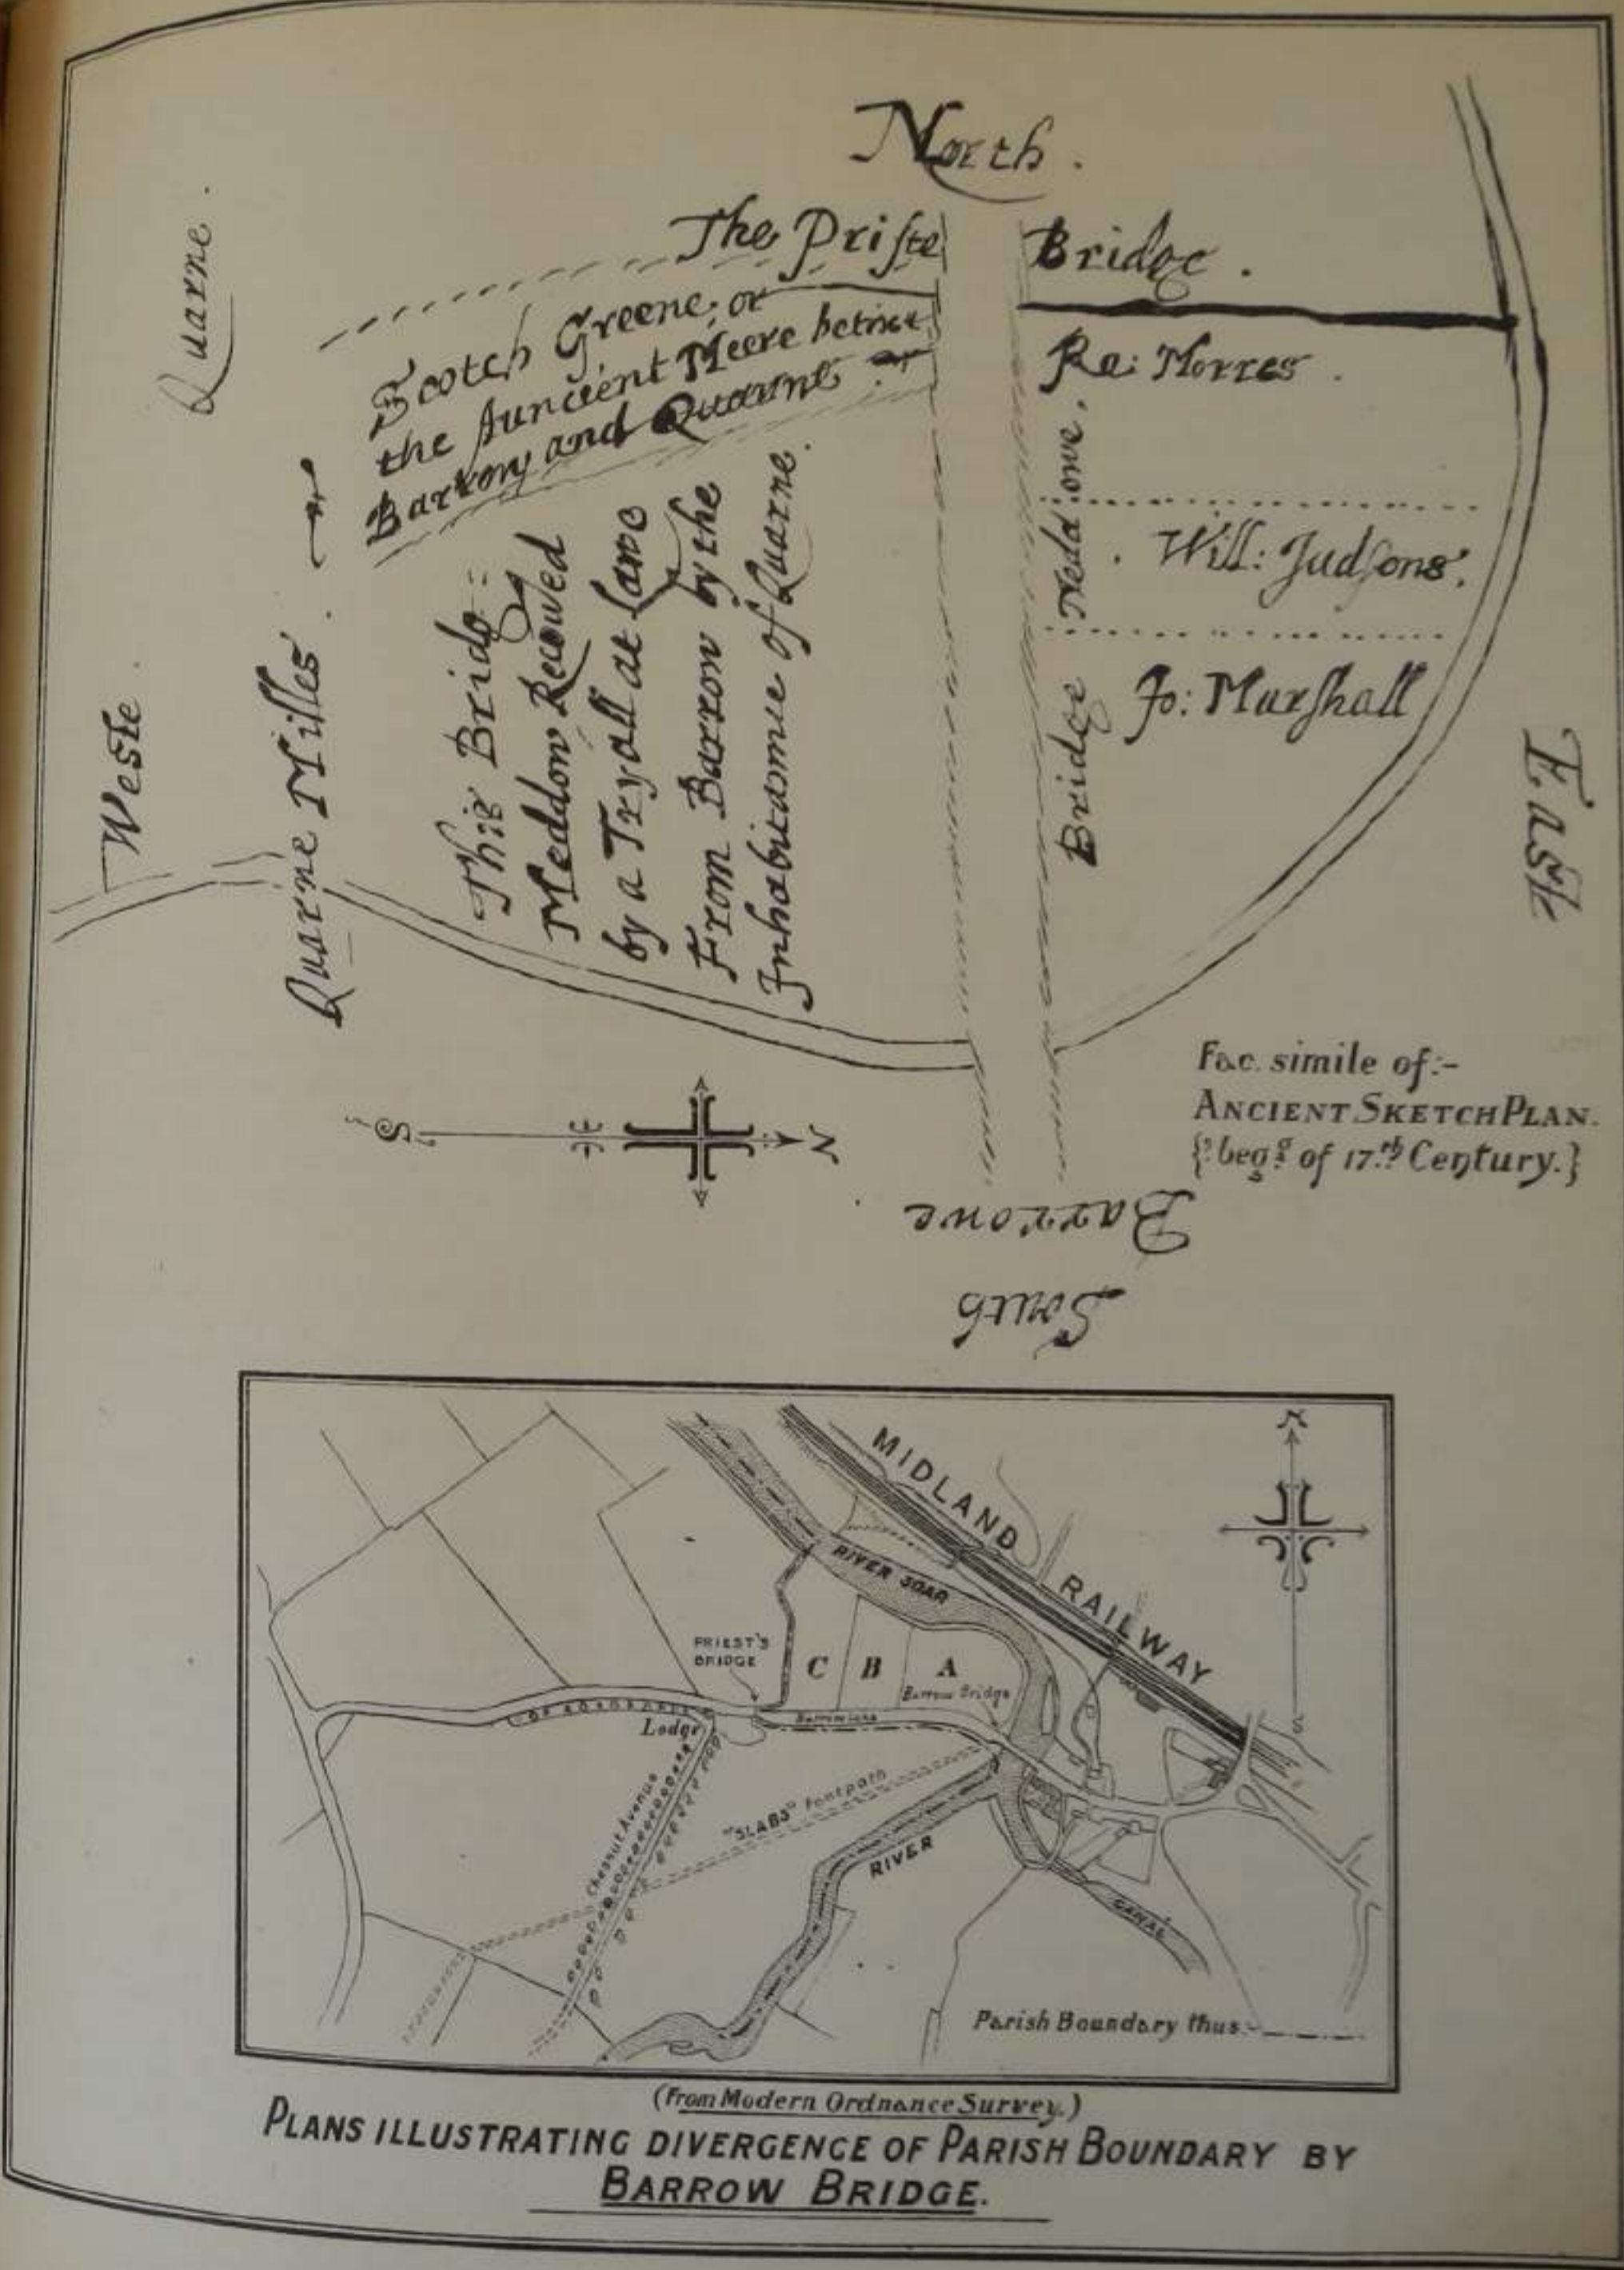 North.
The Priste Bridge.
Quarne.
Scotch Greene, or
the Auncient Meere betwixt
Barrow and Quarne
Re: Morres.
Will: Judsons.
Jo: Marshall
Bridge Meddowe.
This Bridg=
Meddow Recoured
by a Tryall at Lawe
From Barrow by the
Inhabitance of Quarne.
Weste.
Quarne Milles.
East
S
N
Fac simile of:-
ANCIENT SKETCH PLAN.
{? begg of 17th Century.}
Barrowe
South
MIDLAND RAILWAY
N
S
RIVER SOAR
PRIEST'S
BRIDGE
C
B
A
Barrow Bridge
Barrow Lane
Lodge
Chesnut Avenue
"SLABS" Footpath
RIVER
CANAL
Parish Boundary thus:-
(From Modern Ordnance Survey.)
PLANS ILLUSTRATING DIVERGENCE OF PARISH BOUNDARY BY
BARROW BRIDGE.